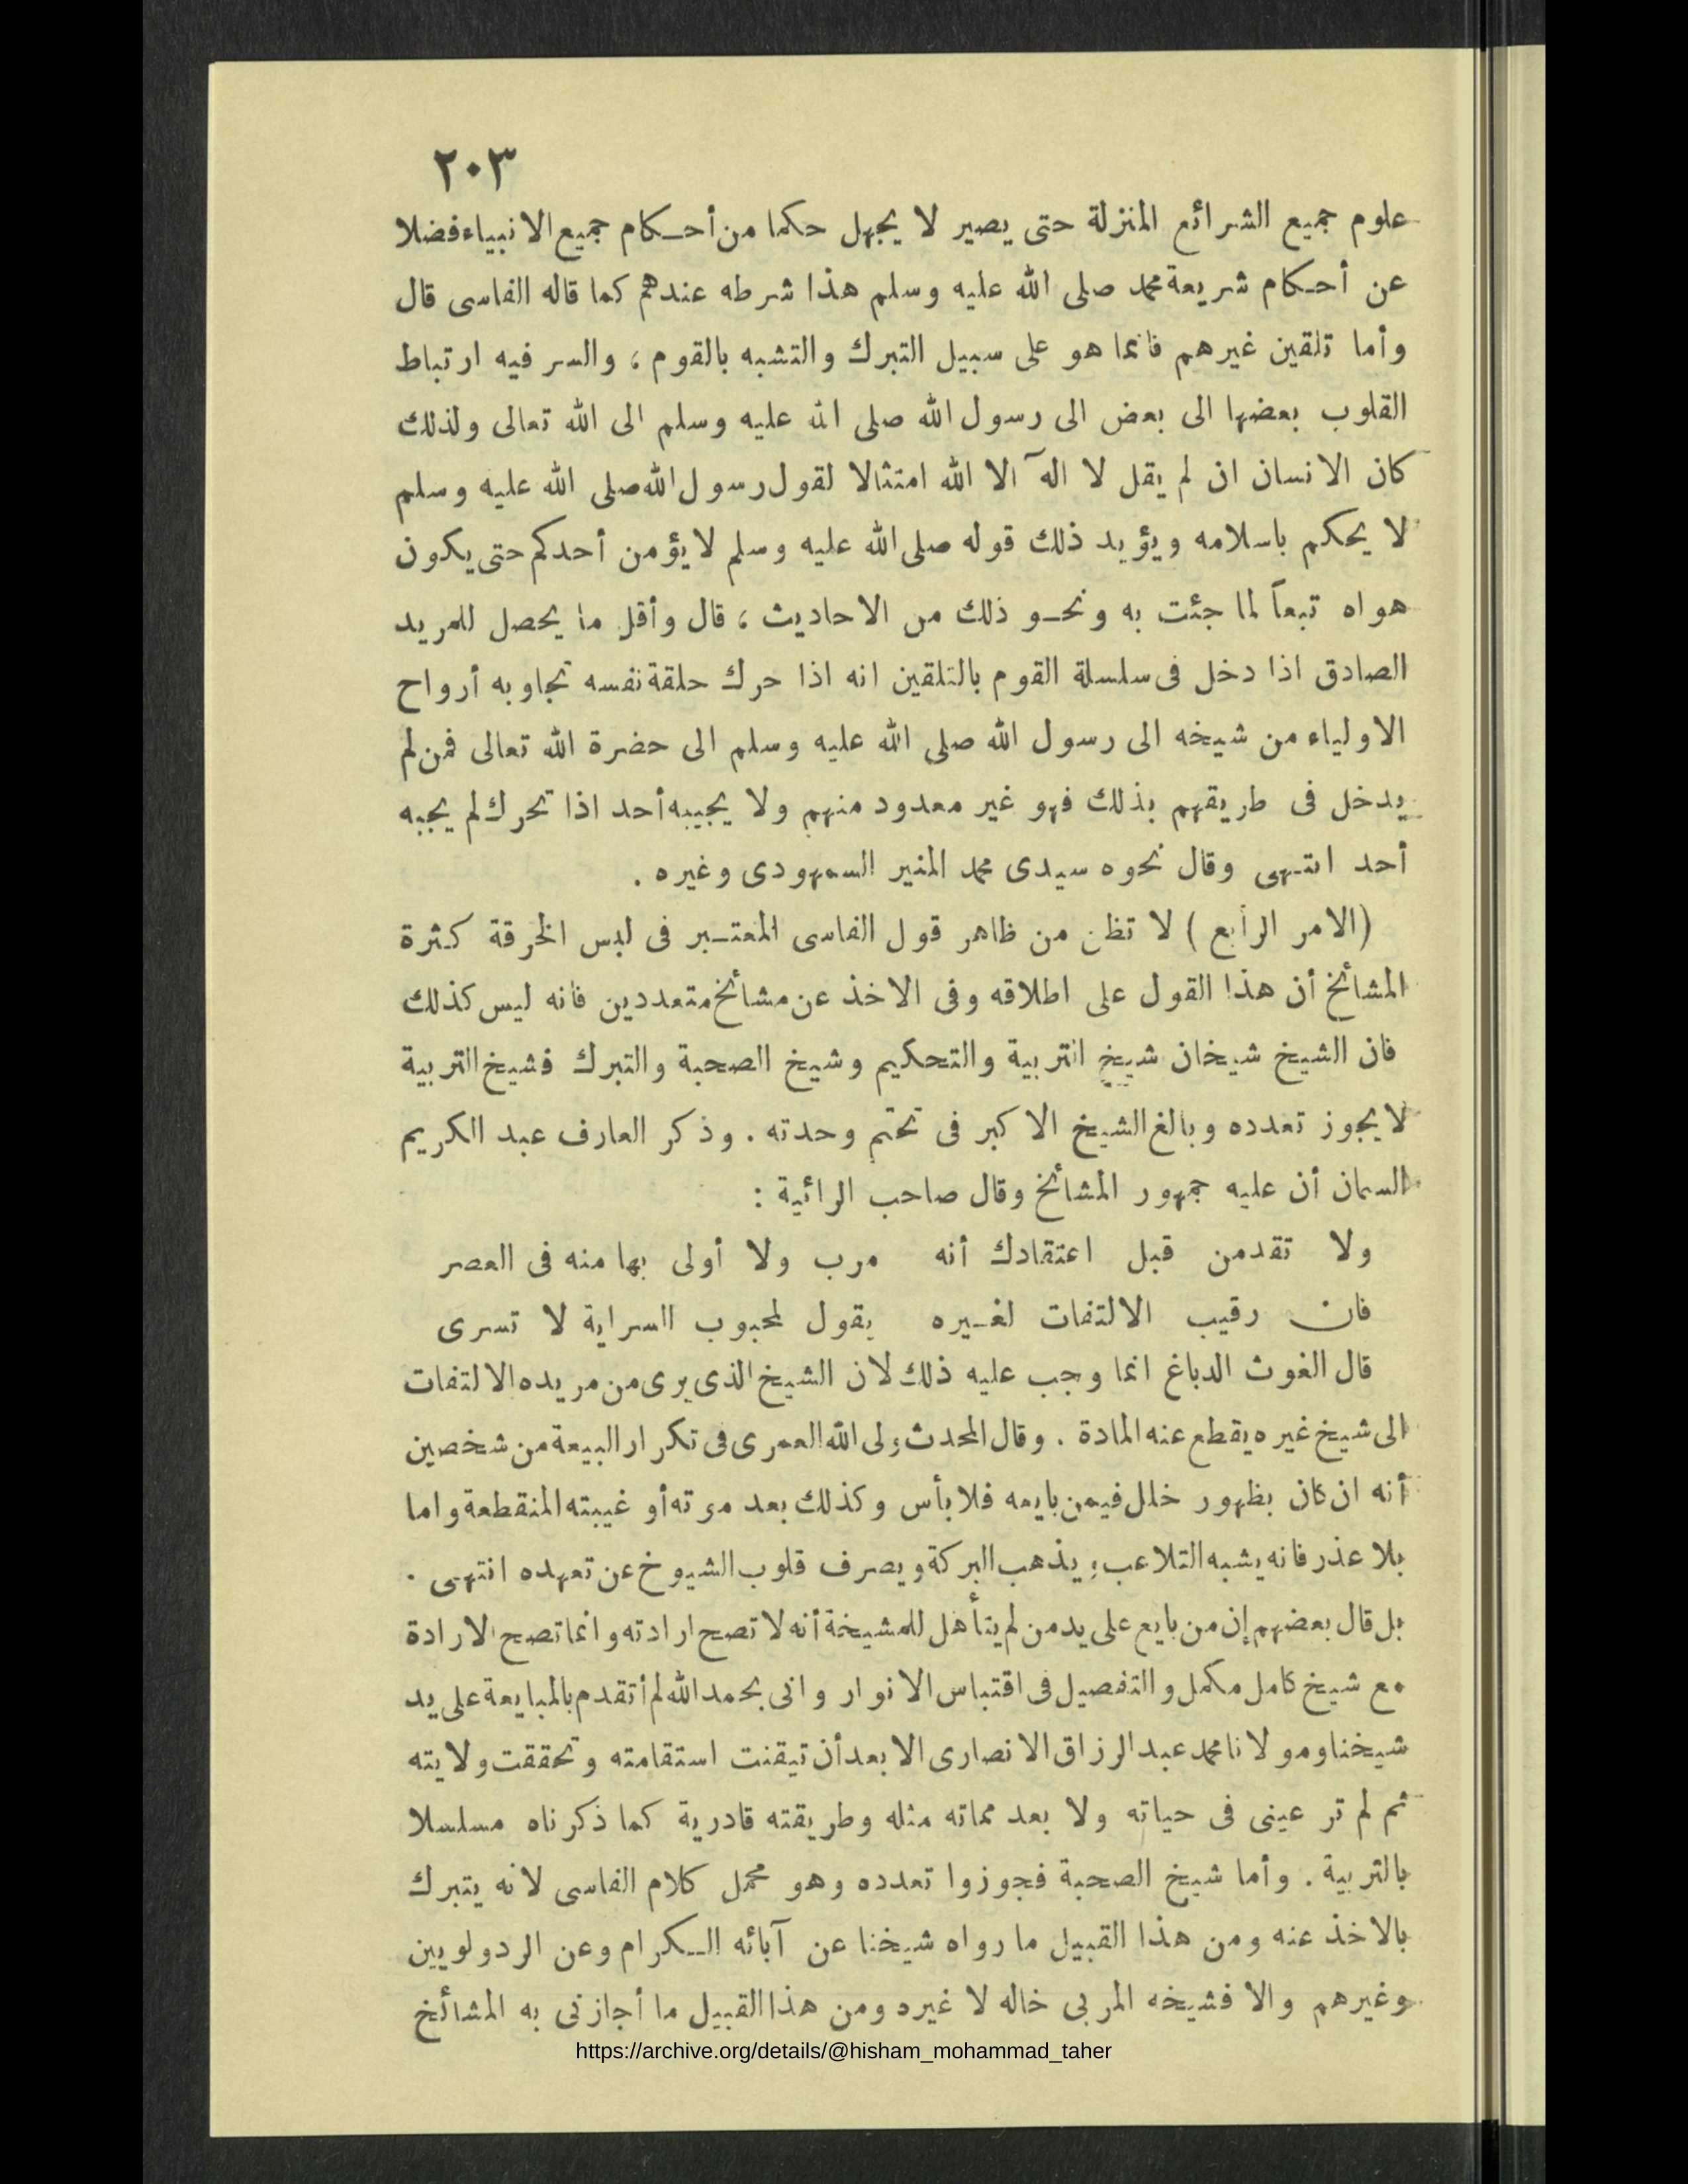 ٢٠٣
علوم جميع الشرائع المنزلة حتى يصير لا يجهل حكما من أحكام جميع الانبياء فضلا
عن أحكام شريعة محمد صلى الله عليه وسلم هذا شرطه عندهم كما قاله الفاسى قال
وأما تلقين غيرهم فانما هو على سبيل التبرك والتشبه بالقوم ، والسر فيه ارتباط
القلوب بعضها الى بعض الى رسول الله صلى الله عليه وسلم الى الله تعالى ولذلك
كان الانسان ان لم يقل لا اله الا الله امتثالا لقول رسول الله صلى الله عليه وسلم
لا يحكم باسلامه ويؤيد ذلك قوله صلى الله عليه وسلم لا يؤمن أحدكم حتى يكون
هواه تبعاً لما جئت به ونحو ذلك من الاحاديث ، قال وأقل ما يحصل للمريد
الصادق اذا دخل فى سلسلة القوم بالتلقين انه اذا حرك حلقة نفسه تجاوبه أرواح
الاولياء من شيخه الى رسول الله صلى الله عليه وسلم الى حضرة الله تعالى فمن لم
يدخل فى طريقهم بذلك فهو غير معدود منهم ولا يجيبه أحد اذا تحرك لم يجبه
أحد انتهى وقال نحوه سيدى محمد المنير السمهودى وغيره .
(الامر الرابع ) لا تظن من ظاهر قول الفاسى المعتبر فى لبس الخرقة كثرة
المشائخ أن هذا القول على اطلاقه وفى الاخذ عن مشائخ متعددين فانه ليس كذلك
فان الشيخ شيخان شيخ التربية والتحكيم وشيخ الصحبة والتبرك فشيخ التربية
لا يجوز تعدده وبالغ الشيخ الاكبر فى تحتم وحدته . وذكر العارف عبد الكريم
السمان أن عليه جمهور المشائخ وقال صاحب الرائية :
ولا تقدمن قبل اعتقادك أنه مرب ولا أولى بها منه فى العصر
فان رقيب الالتفات لغيره يقول لمحبوب السراية لا تسرى
قال الغوث الدباغ انما وجب عليه ذلك لان الشيخ الذى يرى من مريده الالتفات
الى شيخ غيره يقطع عنه المادة . وقال المحدث ولى الله العمرى فى تكرار البيعة من شخصين
أنه ان كان بظهور خلل فيمن بايعه فلا بأس وكذلك بعد موته أو غيبته المنقطعة واما
بلا عذر فانه يشبه التلاعب ويذهب البركة ويصرف قلوب الشيوخ عن تعهده انتهى .
بل قال بعضهم إن من بايع على يد من لم يتأهل للمشيخة أنه لا تصح ارادته وانما تصح الارادة
مع شيخ كامل مكمل والتفصيل فى اقتباس الانوار وانى بحمد الله لم أتقدم بالمبايعة على يد
شيخنا ومولانا محمد عبد الرزاق الانصارى الا بعد أن تيقنت استقامته وتحققت ولايته
ثم لم تر عينى فى حياته ولا بعد مماته مثله وطريقته قادرية كما ذكرناه مسلسلا
بالتربية . وأما شيخ الصحبة فجوزوا تعدده وهو محمل كلام الفاسى لانه يتبرك
بالاخذ عنه ومن هذا القبيل ما رواه شيخنا عن آبائه الكرام وعن الردولويين
وغيرهم والا فشيخه المربى خاله لا غيره ومن هذا القبيل ما أجازنى به المشائخ
https://archive.org/details/@hisham_mohammad_taher